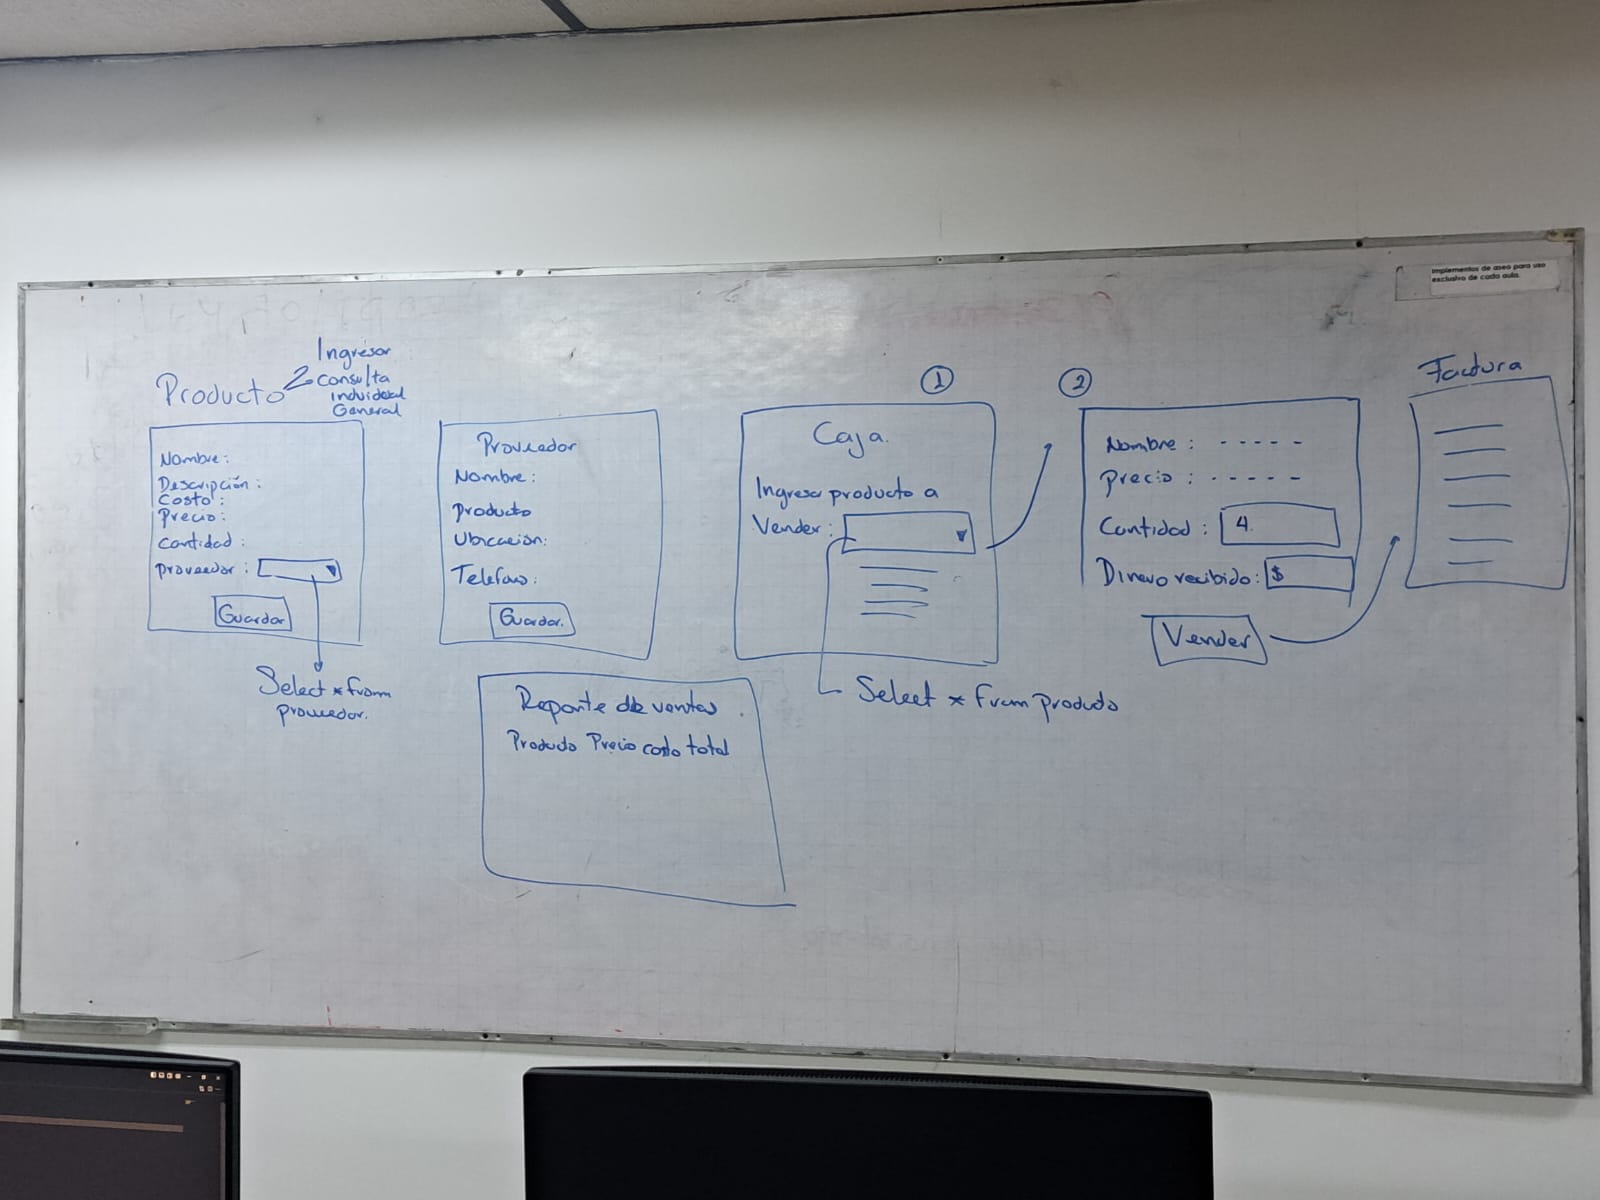 Implementos de aseo para uso
exclusivo de cada aula.
Producto
Ingresar
Consulta
individual
General
Nombre:
Descripción:
Costo:
Precio:
Cantidad:
Proveedor:
Guardar
Select * from
proveedor.
Proveedor
Nombre:
Producto
Ubicación:
Telefono:
Guardar.
Reporte de ventas
Producto Precio costo total
1
Caja.
Ingresar producto a
Vender:
Select * from producto
2
Nombre: - - - - -
Precio: - - - - -
Cantidad: 4.
Dinero recibido: $
Vender
Factura